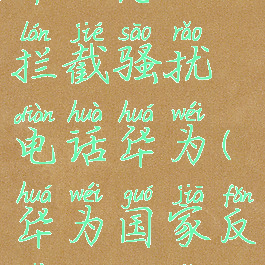 lán jié sāo rǎo
拦截骚扰
diàn huà huá wéi
电话华为(
huá wéi guó jiā fǎn
华为国家反